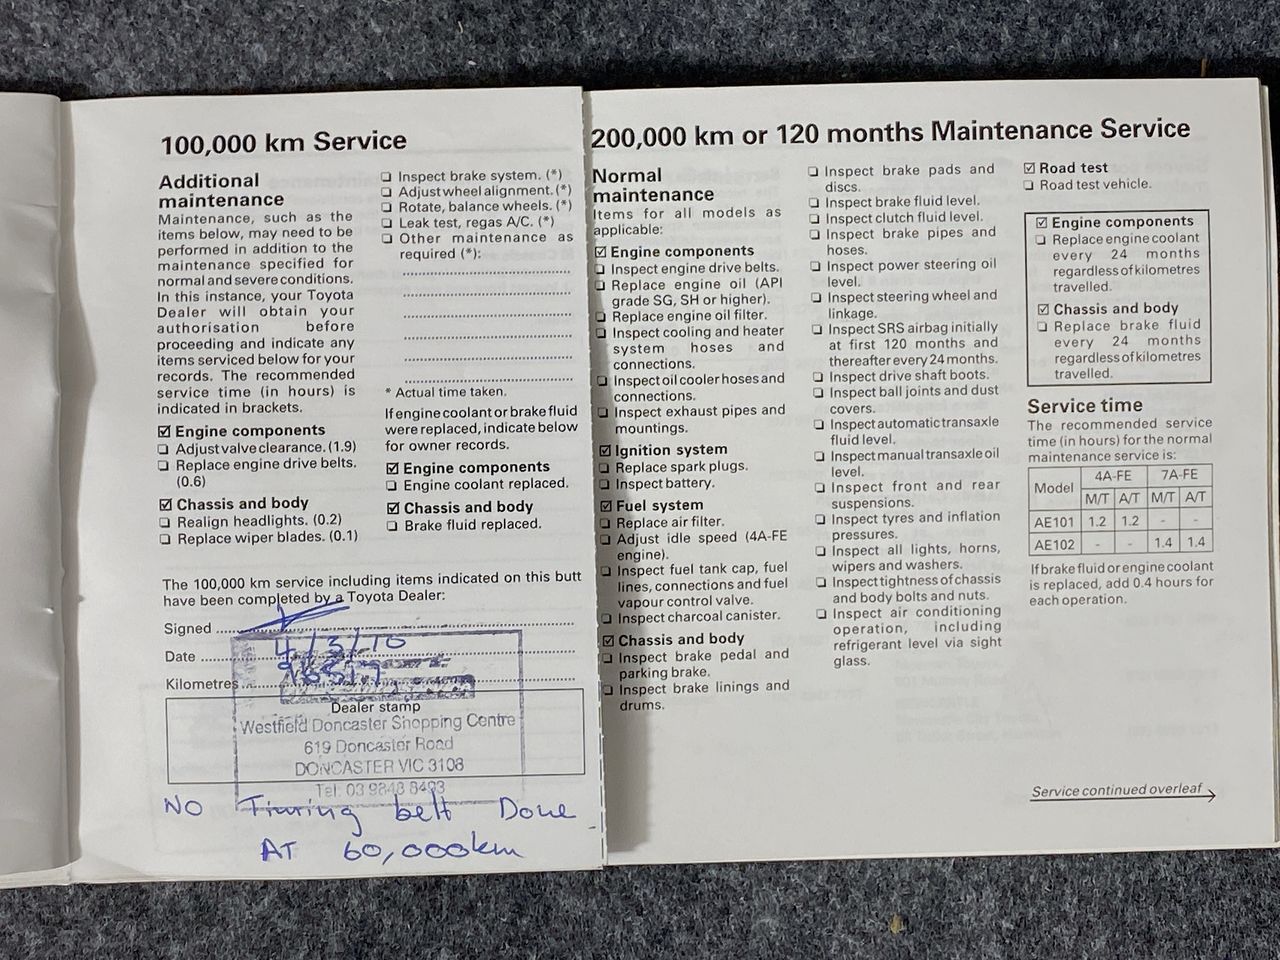 100,000 km Service
Additional
maintenance
Maintenance, such as the
items below, may need to be
performed in addition to the
maintenance specified for
normal and severe conditions.
In this instance, your Toyota
Dealer will obtain your
authorisation before
proceeding and indicate any
items serviced below for your
records. The recommended
service time (in hours) is
indicated in brackets.
☑ Engine components
❏ Adjust valve clearance. (1.9)
❏ Replace engine drive belts.
(0.6)
☑ Chassis and body
❏ Realign headlights. (0.2)
❏ Replace wiper blades. (0.1)
❏ Inspect brake system. (*)
❏ Adjust wheel alignment. (*)
❏ Rotate, balance wheels. (*)
❏ Leak test, regas A/C. (*)
❏ Other maintenance as
required (*):
* Actual time taken.
If engine coolant or brake fluid
were replaced, indicate below
for owner records.
☑ Engine components
❏ Engine coolant replaced.
☑ Chassis and body
❏ Brake fluid replaced.
The 100,000 km service including items indicated on this butt
have been completed by a Toyota Dealer:
Signed
Date 4/3/10
Kilometres 96517
Dealer stamp
Westfield Doncaster Shopping Centre
619 Doncaster Road
DONCASTER VIC 3108
Tel: 03 9848 8493
NO Timing belt Done
AT 60,000km
200,000 km or 120 months Maintenance Service
Normal
maintenance
Items for all models as
applicable:
☑ Engine components
❏ Inspect engine drive belts.
❏ Replace engine oil (API
grade SG, SH or higher).
❏ Replace engine oil filter.
❏ Inspect cooling and heater
system hoses and
connections.
❏ Inspect oil cooler hoses and
connections.
❏ Inspect exhaust pipes and
mountings.
☑ Ignition system
❏ Replace spark plugs.
❏ Inspect battery.
☑ Fuel system
❏ Replace air filter.
❏ Adjust idle speed (4A-FE
engine).
❏ Inspect fuel tank cap, fuel
lines, connections and fuel
vapour control valve.
❏ Inspect charcoal canister.
☑ Chassis and body
❏ Inspect brake pedal and
parking brake.
❏ Inspect brake linings and
drums.
❏ Inspect brake pads and
discs.
❏ Inspect brake fluid level.
❏ Inspect clutch fluid level.
❏ Inspect brake pipes and
hoses.
❏ Inspect power steering oil
level.
❏ Inspect steering wheel and
linkage.
❏ Inspect SRS airbag initially
at first 120 months and
thereafter every 24 months.
❏ Inspect drive shaft boots.
❏ Inspect ball joints and dust
covers.
❏ Inspect automatic transaxle
fluid level.
❏ Inspect manual transaxle oil
level.
❏ Inspect front and rear
suspensions.
❏ Inspect tyres and inflation
pressures.
❏ Inspect all lights, horns,
wipers and washers.
❏ Inspect tightness of chassis
and body bolts and nuts.
❏ Inspect air conditioning
operation, including
refrigerant level via sight
glass.
☑ Road test
❏ Road test vehicle.
☑ Engine components
❏ Replace engine coolant
every 24 months
regardless of kilometres
travelled.
☑ Chassis and body
❏ Replace brake fluid
every 24 months
regardless of kilometres
travelled.
Service time
The recommended service
time (in hours) for the normal
maintenance service is:
Model 4A-FE 7A-FE
M/T A/T M/T A/T
AE101 1.2 1.2 - -
AE102 - - 1.4 1.4
If brake fluid or engine coolant
is replaced, add 0.4 hours for
each operation.
Service continued overleaf